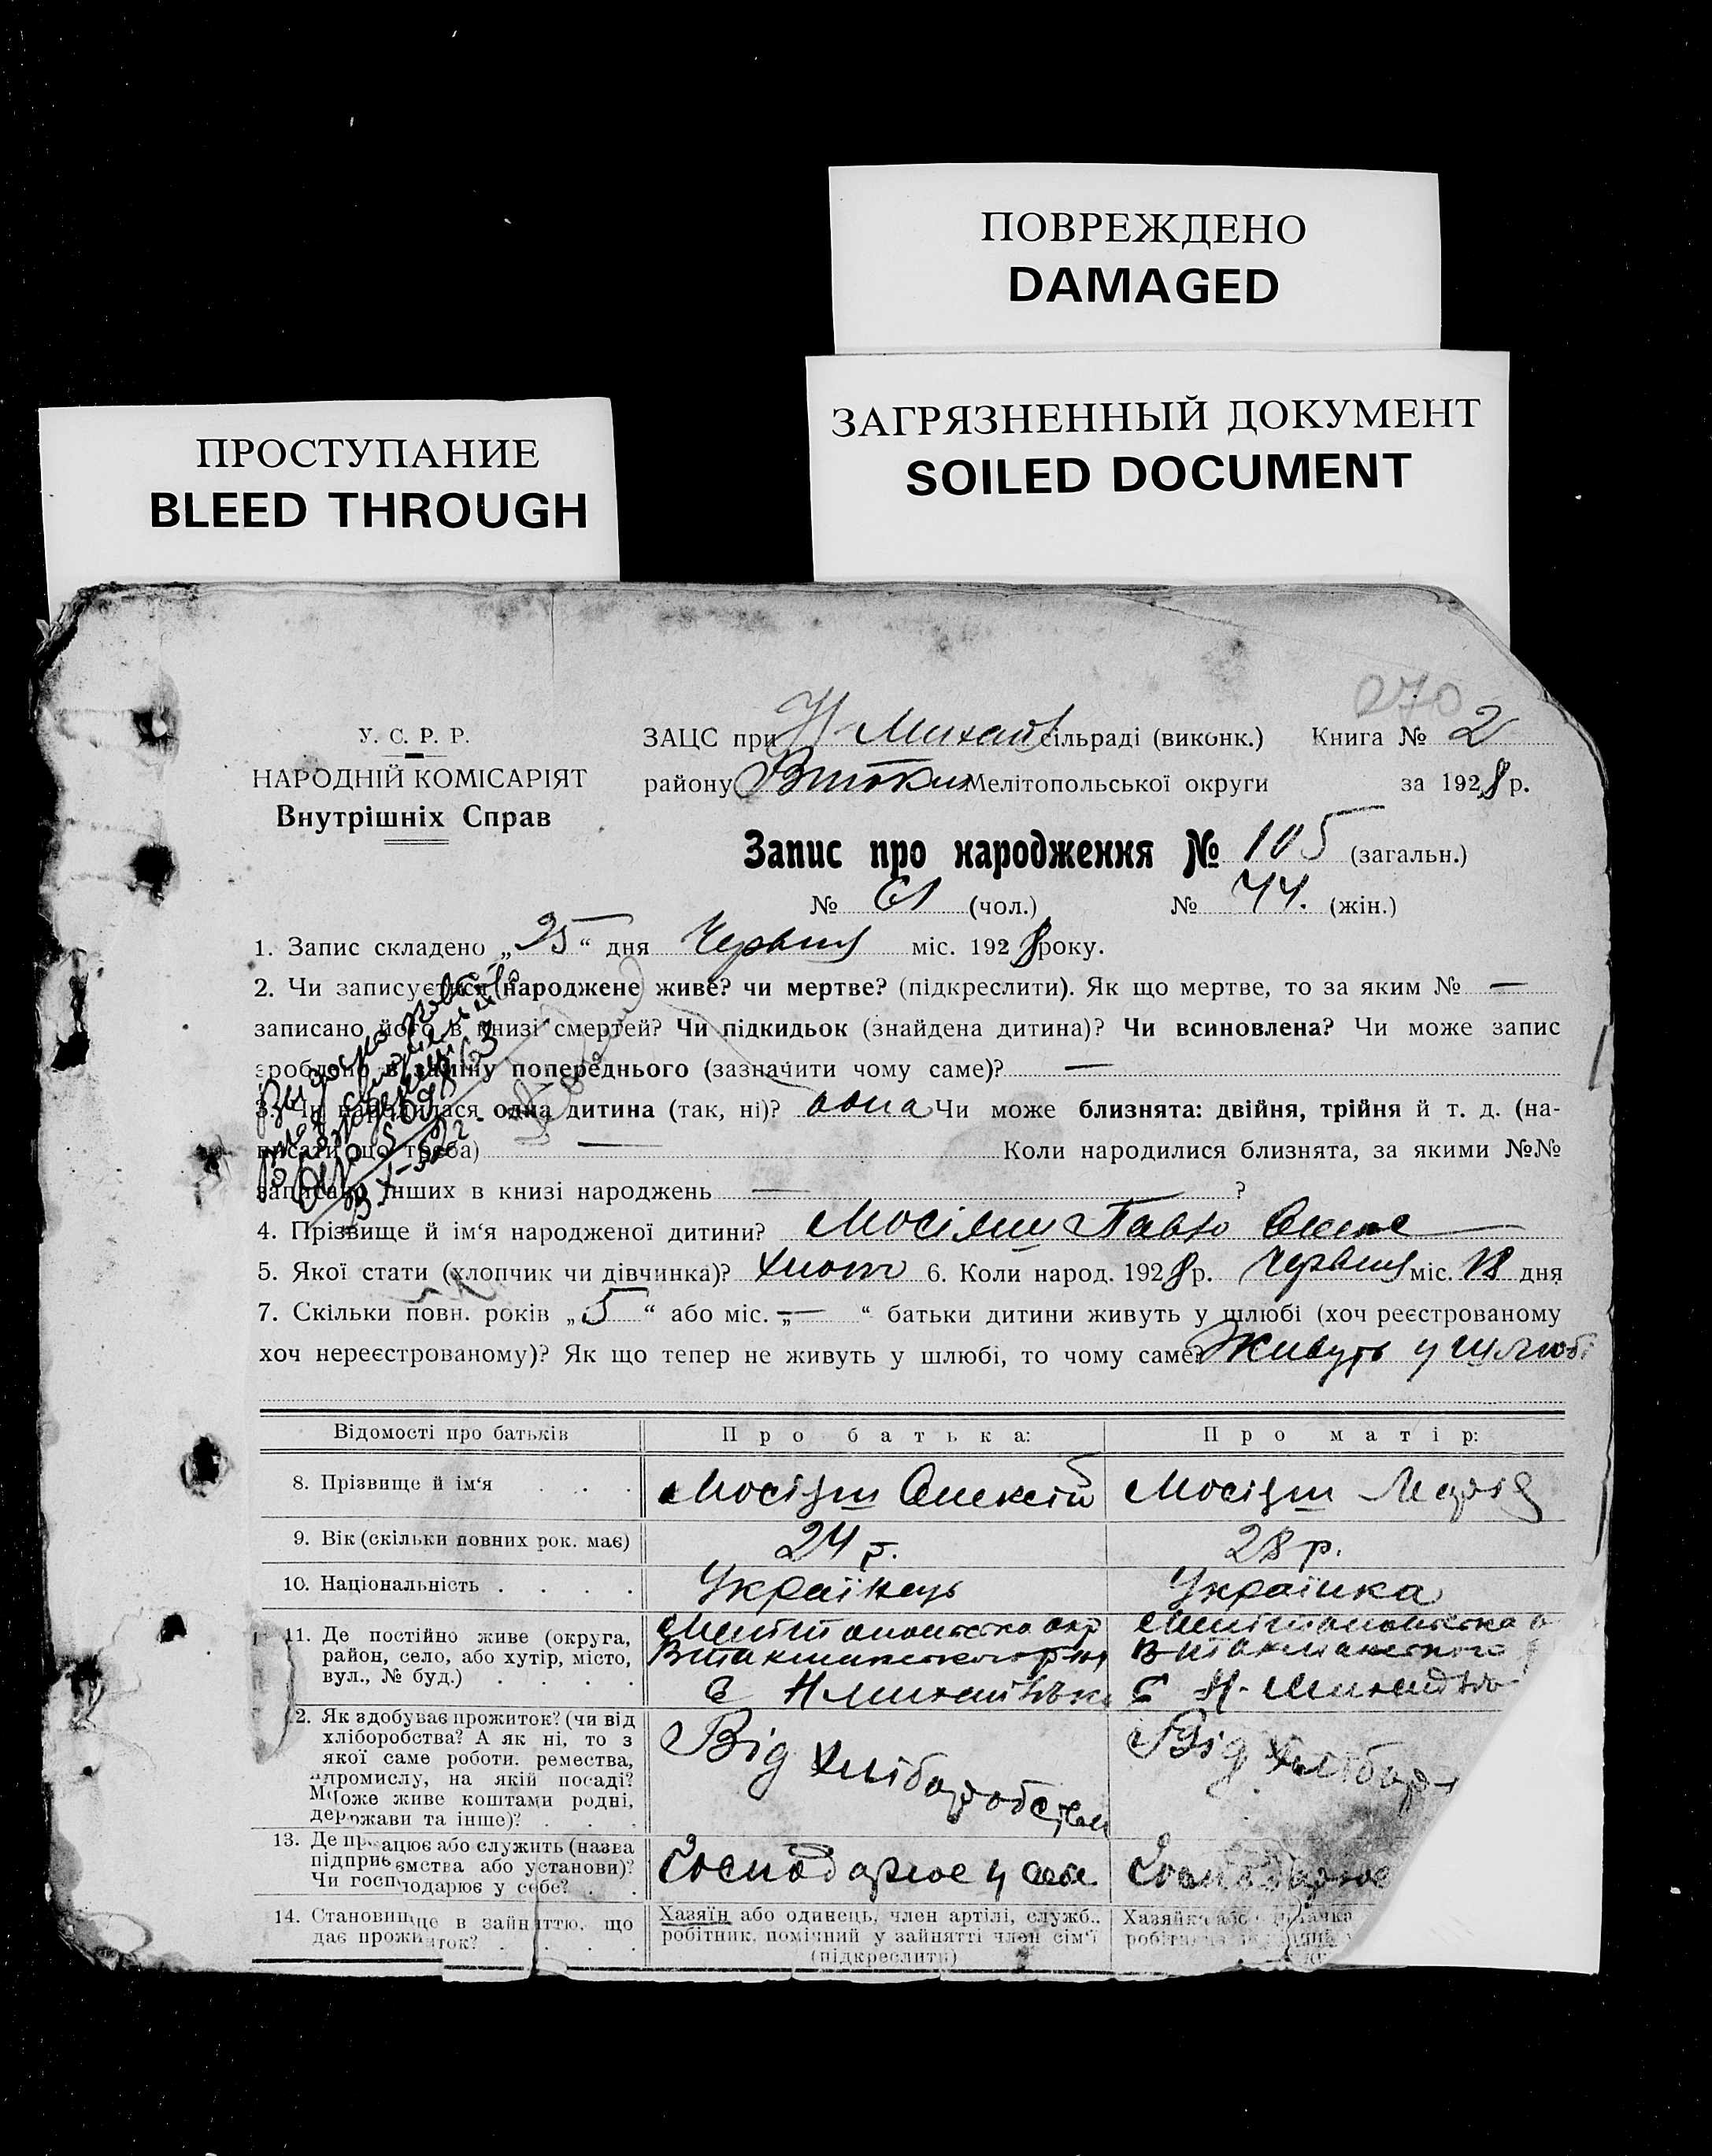 ПОВРЕЖДЕНО
DAMAGED
ПРОСТУПАНИЕ
BLEED THROUGH
ЗАГРЯЗНЕННЫЙ ДОКУМЕНТ
SOILED DOCUMENT
270
У. С. Р. Р.
НАРОДНІЙ КОМІСАРІЯТ
Внутрішніх Справ
ЗАЦС при Н Михай сільраді (виконк.) Книга № 2
району Мелітопольської округи за 1928 р.
Запис про народження № 105 (загальн.)
№ 61 (чол.) № 44. (жін.)
1. Запис складено „25“ дня Червня міс. 1928 року.
2. Чи записується народжене живе? чи мертве? (підкреслити). Як що мертве, то за яким № —
записано його в книзі смертей? Чи підкидьок (знайдена дитина)? Чи всиновлена? Чи може запис
зроблено в заміну попереднього (зазначити чому саме)? —
3. Чи народилася одна дитина (так, ні)? одна Чи може близнята: двійня, трійня й т. д. (на-
писати що треба) — Коли народилися близнята, за якими №№
записано інших в книзі народжень — ?
4. Прізвище й ім‘я народженої дитини? Павло
5. Якої стати (хлопчик чи дівчинка)? хлопч 6. Коли народ. 1928 р. Червня міс. 18 дня
7. Скільки повн. років „5“ або міс. „—“ батьки дитини живуть у шлюбі (хоч реєстрованому
хоч нереєстрованому)? Як що тепер не живуть у шлюбі, то чому саме? Живуть у шлюбі
Відомості про батьків Про батька: Про матір:
8. Прізвище й ім‘я . . . Олексій Марія
9. Вік (скільки повних рок. має) 24 р. 28 р.
10. Національність . . . . Українець Українка
11. Де постійно живе (округа,
район, село, або хутір, місто,
вул., № буд.) . . . .
Мелітопольська окр
С Н Михайлівк
Мелітопольська о
С Н. Михайлів
12. Як здобуває прожиток? (чи від
хліборобства? А як ні, то з
якої саме роботи. ремества,
промислу, на якій посаді?
Може живе коштами родні,
держави та інше)? . . .
Від хліборобства
Від хлібор
13. Де працює або служить (назва
підприємства або установи)?
Чи господарює у себе? . .
Господарює у себе
Господарює
14. Становище в зайняттю, що
дає прожиток? . . . .
Хазяїн або одинець, член артілі, служб..
робітник, помічний у зайнятті член сім‘ї
(підкреслити)
Хазяйка або одиначка